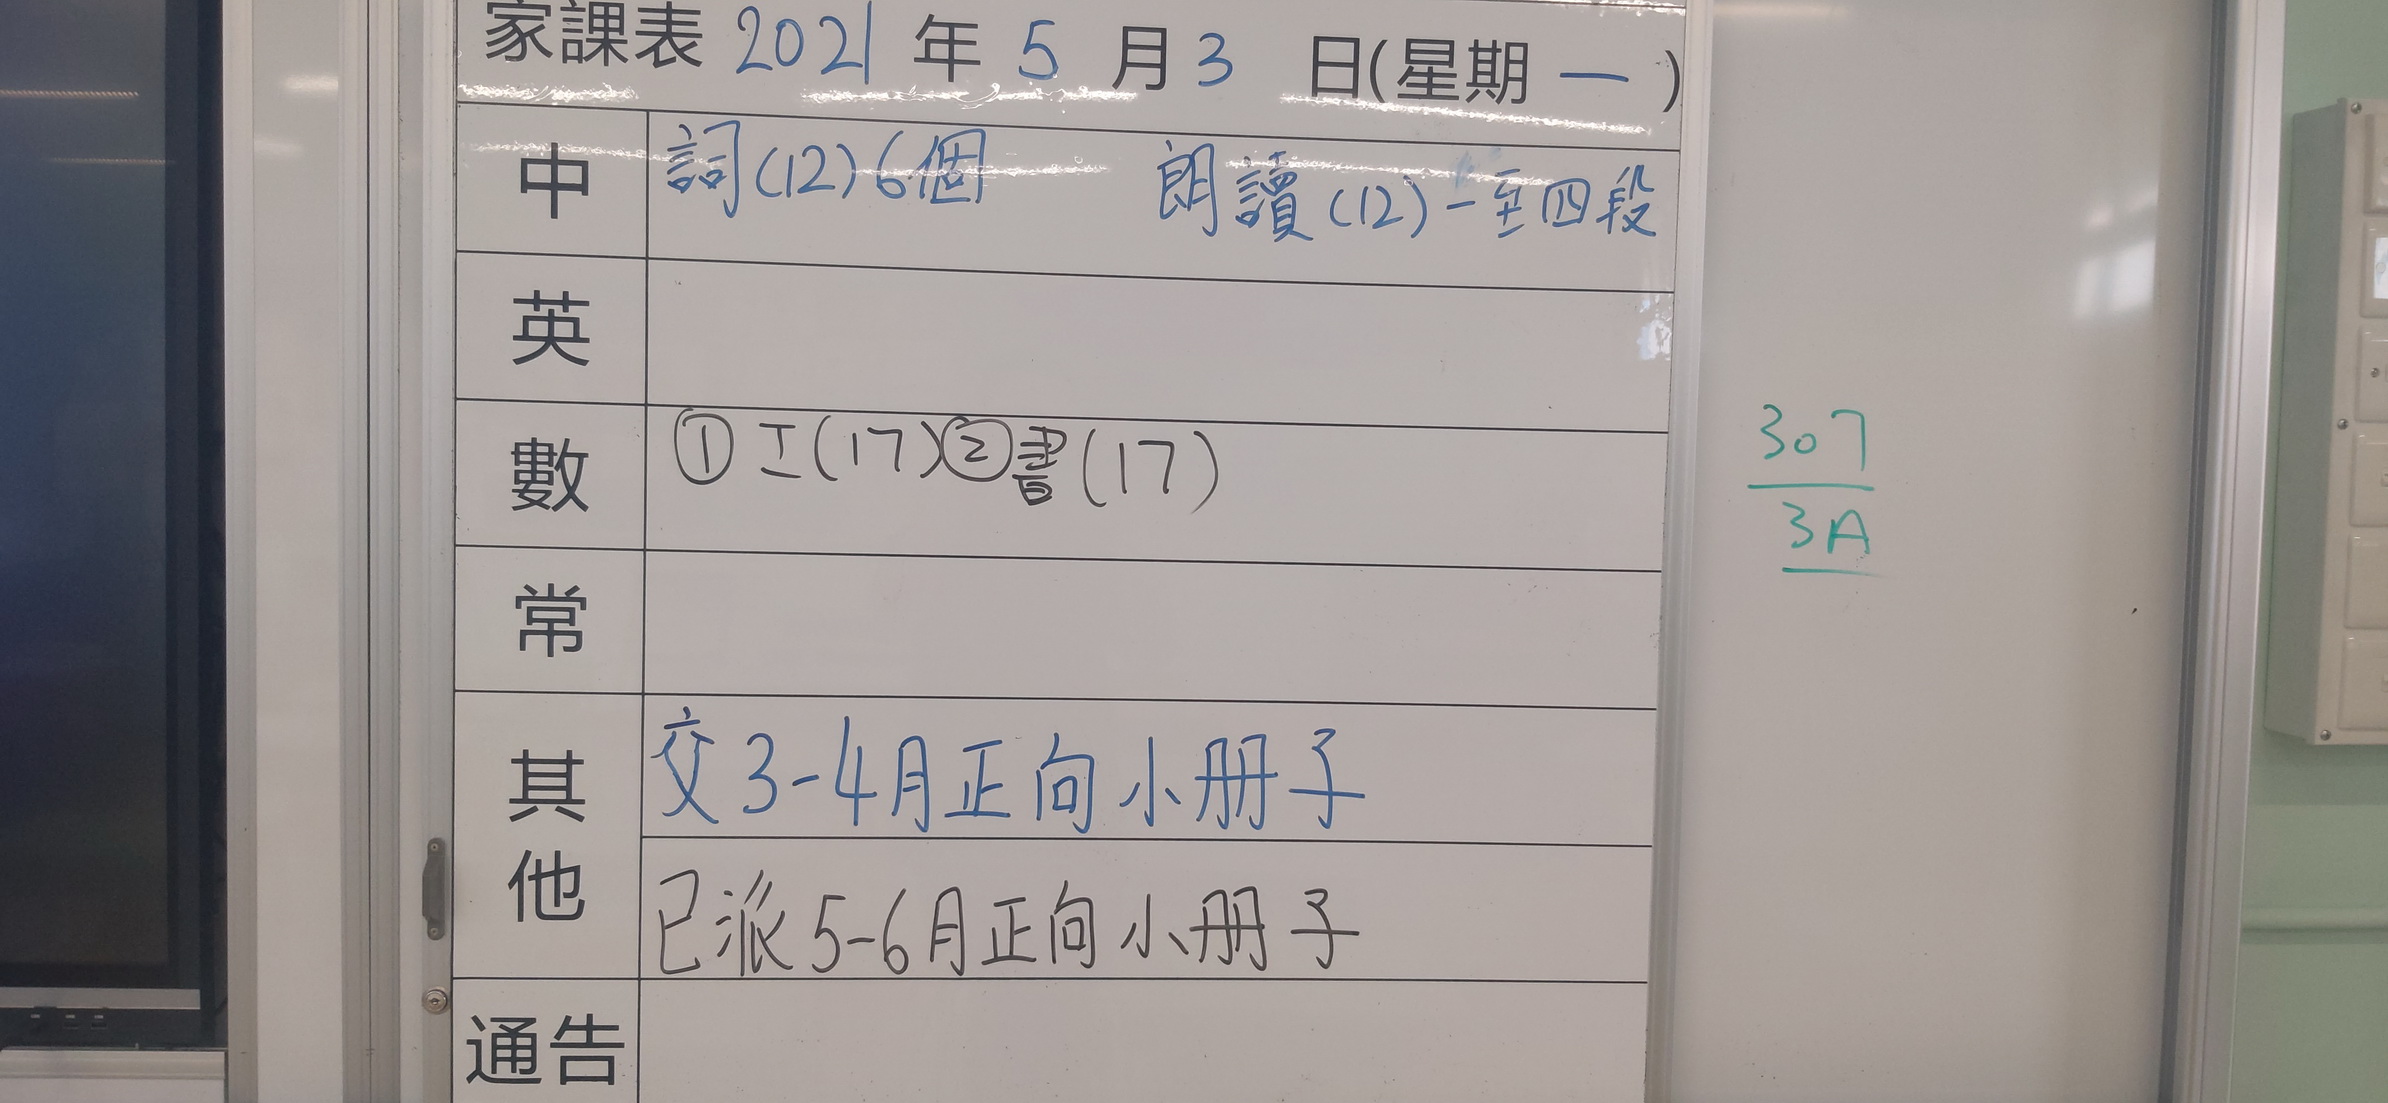 家課表 2021 年 5 月 3 日(星期 一 )
中 詞(12)6個 朗讀(12)一至四段
英
數 ①工(17)②書(17)
常
其他
交3-4月正向小册子
已派5-6月正向小册子
通告
307
3A